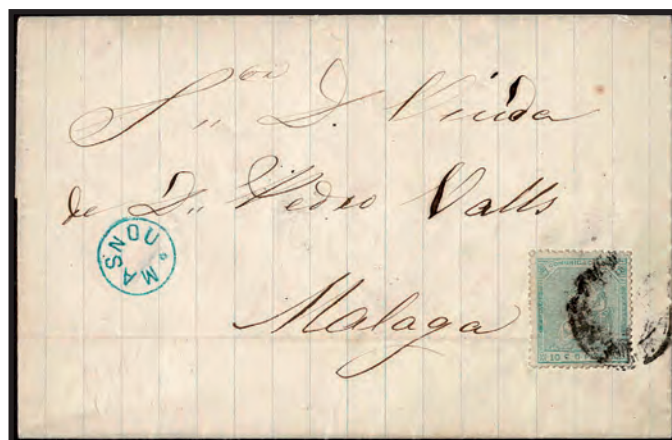 S.ª D. Viuda
de D.ⁿ Pedro Valls
Malaga
MASNOU